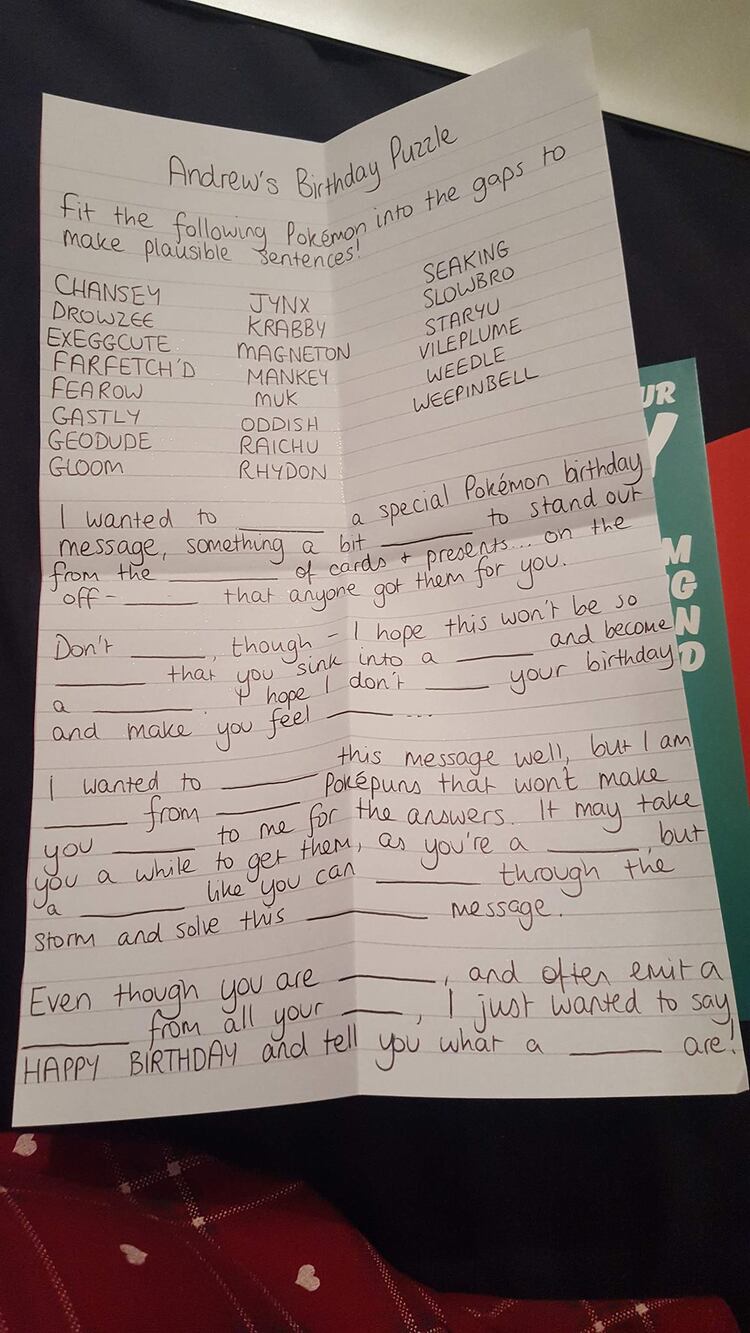 Andrew's Birthday Puzzle
Fit the following Pokémon into the gaps to
make plausible sentences!
CHANSEY
DROWZEE
EXEGGCUTE
FARFETCH'D
FEAROW
GASTLY
GEODUDE
GLOOM
JYNX
KRABBY
MAGNETON
MANKEY
MUK
ODDISH
RAICHU
RHYDON
SEAKING
SLOWBRO
STARYU
VILEPLUME
WEEDLE
WEEPINBELL
I wanted to ______ a special Pokémon birthday
message, something a bit ______ to stand out
from the ______ of cards + presents... on the
off-______ that anyone got them for you.
Don't ______, though - I hope this won't be so
______ that you sink into a ______ and become
a ______. I hope I don't ______ your birthday
and make you feel ______ ...
I wanted to ______ this message well, but I am
______ from ______ Poképuns that won't make
you ______ to me for the answers. It may take
you a while to get them, as you're a ______, but
a ______ like you can ______ through the
storm and solve this ______ message.
Even though you are ______, and often emit a
______ from all your ______, I just wanted to say
HAPPY BIRTHDAY and tell you what a ______ are!
UR
Y
M
G
N
D